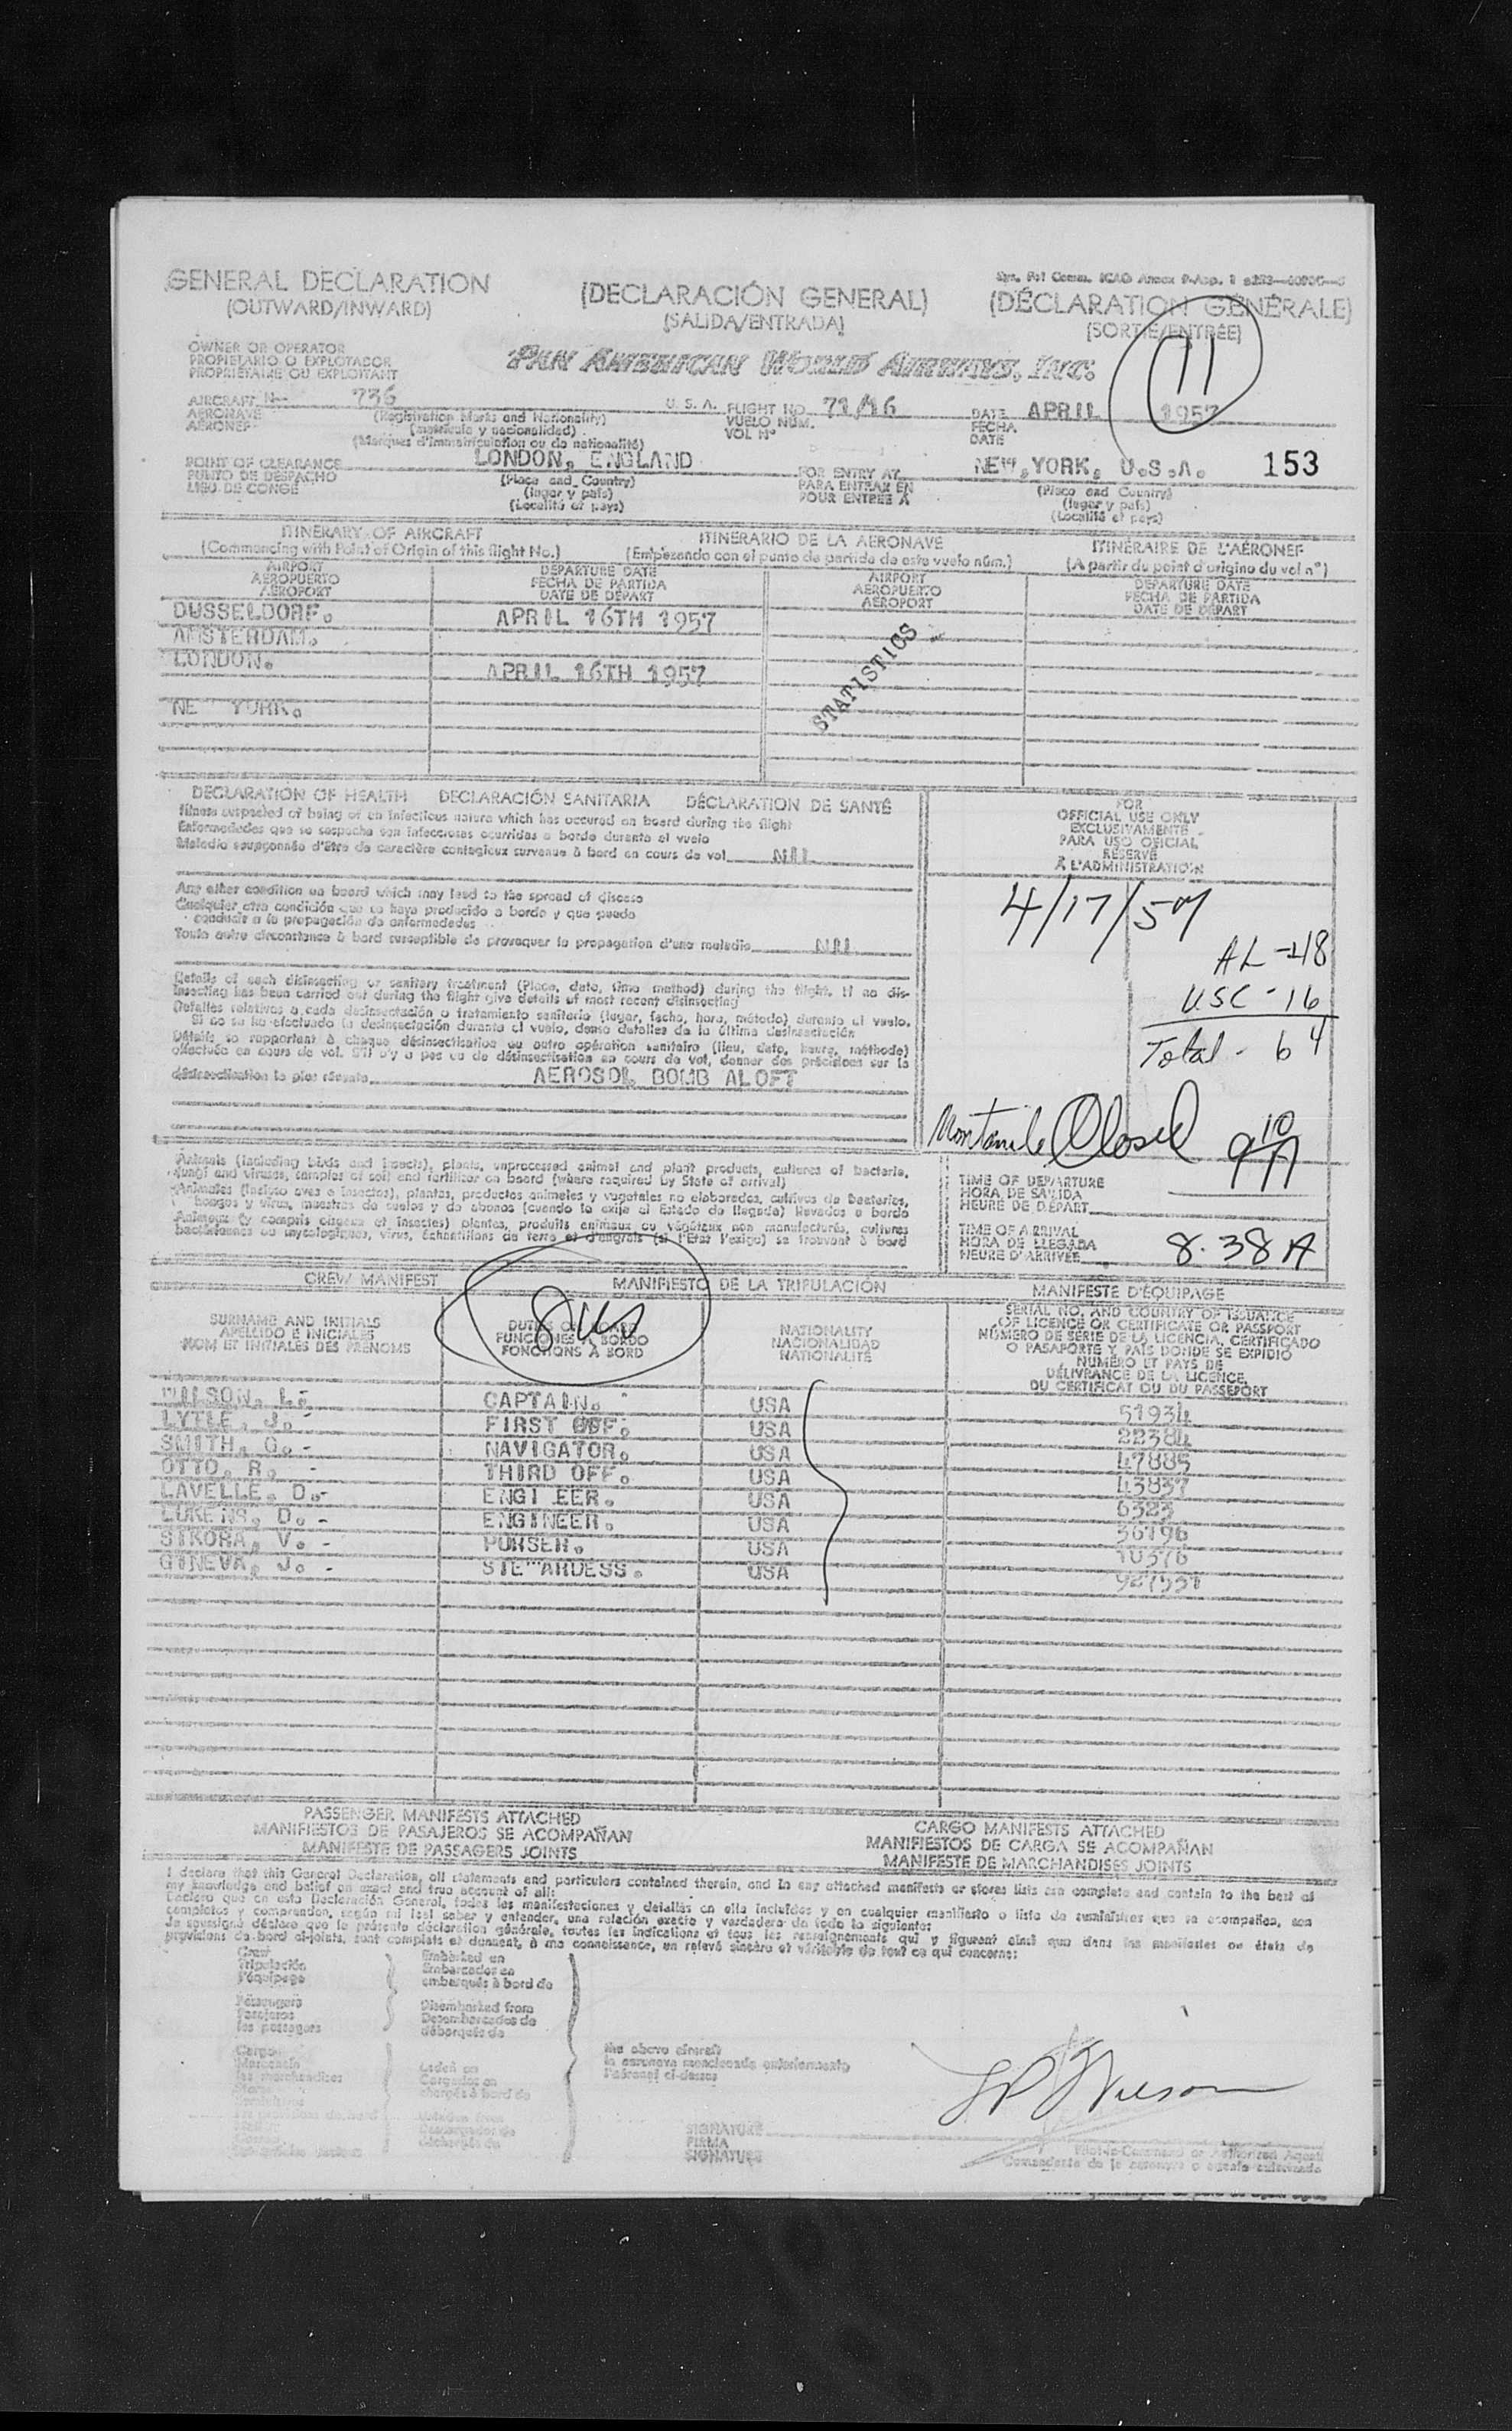 GENERAL DECLARATION
(OUTWARD/INWARD)
(DECLARACIÓN GENERAL)
(SALIDA/ENTRADA)
(DÉCLARATION GÉNÉRALE)
(SORTIE/ENTRÉE)
11
OWNER OR OPERATOR
PROPIETARIO O EXPLOTADOR
PROPRIÉTAIRE OU EXPLOITANT
PAN AMERICAN WORLD AIRWAYS, INC.
AIRCRAFT N- 736 U. S. A.
AERONAVE
AÉRONEF
(Registration Marks and Nationality)
(matrícula y nacionalidad)
(Marques d'immatriculation ou de nationalité)
FLIGHT NO. 71/16
VUELO NÚM.
VOL Nº
DATE APRIL 1957
FECHA
DATE
POINT OF CLEARANCE LONDON, ENGLAND
PUNTO DE DESPACHO
LIEU DE CONGÉ
(Place and Country)
(lugar y país)
(Localité et pays)
FOR ENTRY AT NEW,YORK, U.S.A. 153
PARA ENTRAR EN
POUR ENTRÉE À
(Place and Country)
(lugar y país)
(Localité et pays)
ITINERARY OF AIRCRAFT
(Commencing with Point of Origin of this flight No.)
ITINERARIO DE LA AERONAVE
(Empezando con el punto de partida de este vuelo núm.)
ITINÉRAIRE DE L'AÉRONEF
(A partir du point d'origine du vol nº)
AIRPORT
AEROPUERTO
AÉROPORT
DEPARTURE DATE
FECHA DE PARTIDA
DATE DE DÉPART
AIRPORT
AEROPUERTO
AÉROPORT
DEPARTURE DATE
FECHA DE PARTIDA
DATE DE DÉPART
DUSSELDORF. APRIL 16TH 1957
AMSTERDAM.
LONDON. APRIL 16TH 1957
NE YORK.
STATISTICS
DECLARATION OF HEALTH DECLARACIÓN SANITARIA DÉCLARATION DE SANTÉ
Illness suspected of being of an infectious nature which has occured on board during the flight
Enfermedades que se sospecha son infecciosas ocurridas a bordo durante el vuelo
Maladie soupçonnée d'être de caractère contagieux survenue à bord en cours de vol NIL
Any other condition on board which may lead to the spread of disease
Cualquier otra condición que se haya producido a bordo y que pueda
conducir a la propagación de enfermedades
Toute autre circonstance à bord susceptible de provoquer la propagation d'une maladie NIL
Details of each disinsecting or sanitary treatment (Place, date, time method) during the flight. If no dis-
insecting has been carried out during the flight give details of most recent disinsecting
Detalles relativos a cada desinsectación o tratamiento sanitario (lugar, fecha, hora, método) durante el vuelo.
Si no se ha efectuado la desinsectación durante el vuelo, dense detalles de la última desinsectación
Détails se rapportant à chaque désinsectisation ou autre opération sanitaire (lieu, date, heure, méthode)
effectuée en cours de vol. S'il n'y a pas eu de désinsectisation en cours de vol, donner des précisions sur la
désinsectisation la plus récente AEROSOL BOMB ALOFT
FOR
OFFICIAL USE ONLY
EXCLUSIVAMENTE
PARA USO OFICIAL
RÉSERVÉ
À L'ADMINISTRATION
4/17/57
AL-48
USC-16
Total - 64
Closed 9 10 A
Animals (including birds and insects), plants, unprocessed animal and plant products, cultures of bacteria,
fungi and viruses, samples of soil and fertilizer on board (where required by State of arrival)
Animales (incluso aves e insectos), plantas, productos animales y vegetales no elaborados, cultivos de bacterias,
hongos y virus, muestras de suelos y de abonos (cuando lo exija el Estado de llegada) llevados a bordo
Animaux (y compris oiseaux et insectes) plantes, produits animaux ou végétaux non manufacturés, cultures
bactériennes ou mycologiques, virus, échantillons de terre et d'engrais (si l'Etat l'exige) se trouvant à bord
TIME OF DEPARTURE
HORA DE SALIDA
HEURE DE DÉPART
TIME OF ARRIVAL
HORA DE LLEGADA
HEURE D'ARRIVÉE 8.38 A
CREW MANIFEST MANIFIESTO DE LA TRIPULACIÓN MANIFESTE D'ÉQUIPAGE
SURNAME AND INITIALS
APELLIDO E INICIALES
NOM ET INITIALES DES PRÉNOMS
DUTIES ON BOARD
FUNCIONES A BORDO
FONCTIONS À BORD
NATIONALITY
NACIONALIDAD
NATIONALITÉ
SERIAL NO. AND COUNTRY OF ISSUANCE
OF LICENCE OR CERTIFICATE OR PASSPORT
NÚMERO DE SERIE DE LA LICENCIA, CERTIFICADO
O PASAPORTE Y PAÍS DONDE SE EXPIDIÓ
NUMÉRO ET PAYS DE
DÉLIVRANCE DE LA LICENCE,
DU CERTIFICAT OU DU PASSEPORT
WILSON, L.- CAPTAIN. USA 51934
LYTLE, J.- FIRST OFF. USA 22384
SMITH, O.- NAVIGATOR. USA 47885
OTTO, R. - THIRD OFF. USA 43837
LAVELLE. D.- ENGI EER. USA 6323
LUKENS, D. - ENGINEER. USA 36196
SIKORA, V. - PURSER. USA 10376
GINEVA, J. - STEWARDESS. USA
PASSENGER MANIFESTS ATTACHED
MANIFIESTOS DE PASAJEROS SE ACOMPAÑAN
MANIFESTE DE PASSAGERS JOINTS
CARGO MANIFESTS ATTACHED
MANIFIESTOS DE CARGA SE ACOMPAÑAN
MANIFESTE DE MARCHANDISES JOINTS
I declare that this General Declaration, all statements and particulars contained therein, and in any attached manifests or stores lists are complete and contain to the best of
my knowledge and belief an exact and true account of all:
Declaro que en esta Declaración General, todas las manifestaciones y detalles en ella incluidos y en cualquier manifiesto o lista de suministros que se acompañan, son
completos y comprenden, según mi leal saber y entender, una relación exacta y verdadera de todo lo siguiente:
Je soussigné déclare que la présente déclaration générale, toutes les indications et tous les renseignements qui y figurent ainsi que dans les manifestes ou états de
provisions de bord ci-joints, sont complets et donnent, à ma connaissance, un relevé sincère et véritable de tout ce qui concerne:
Crew
Tripulación
l'équipage
Embarked on
Embarcados en
embarqués à bord de
Passengers
Pasajeros
les passagers
Disembarked from
Desembarcados de
débarqués de
Cargo
les marchandises
Laden on
Cargados en
chargés à bord de
the above aircraft
la aeronave mencionada anteriormente
l'aéronef ci-dessus
SIGNATURE
FIRMA
SIGNATURE
Pilot-in-Command or Authorized Agent
Comandante de la aeronave o agente autorizado